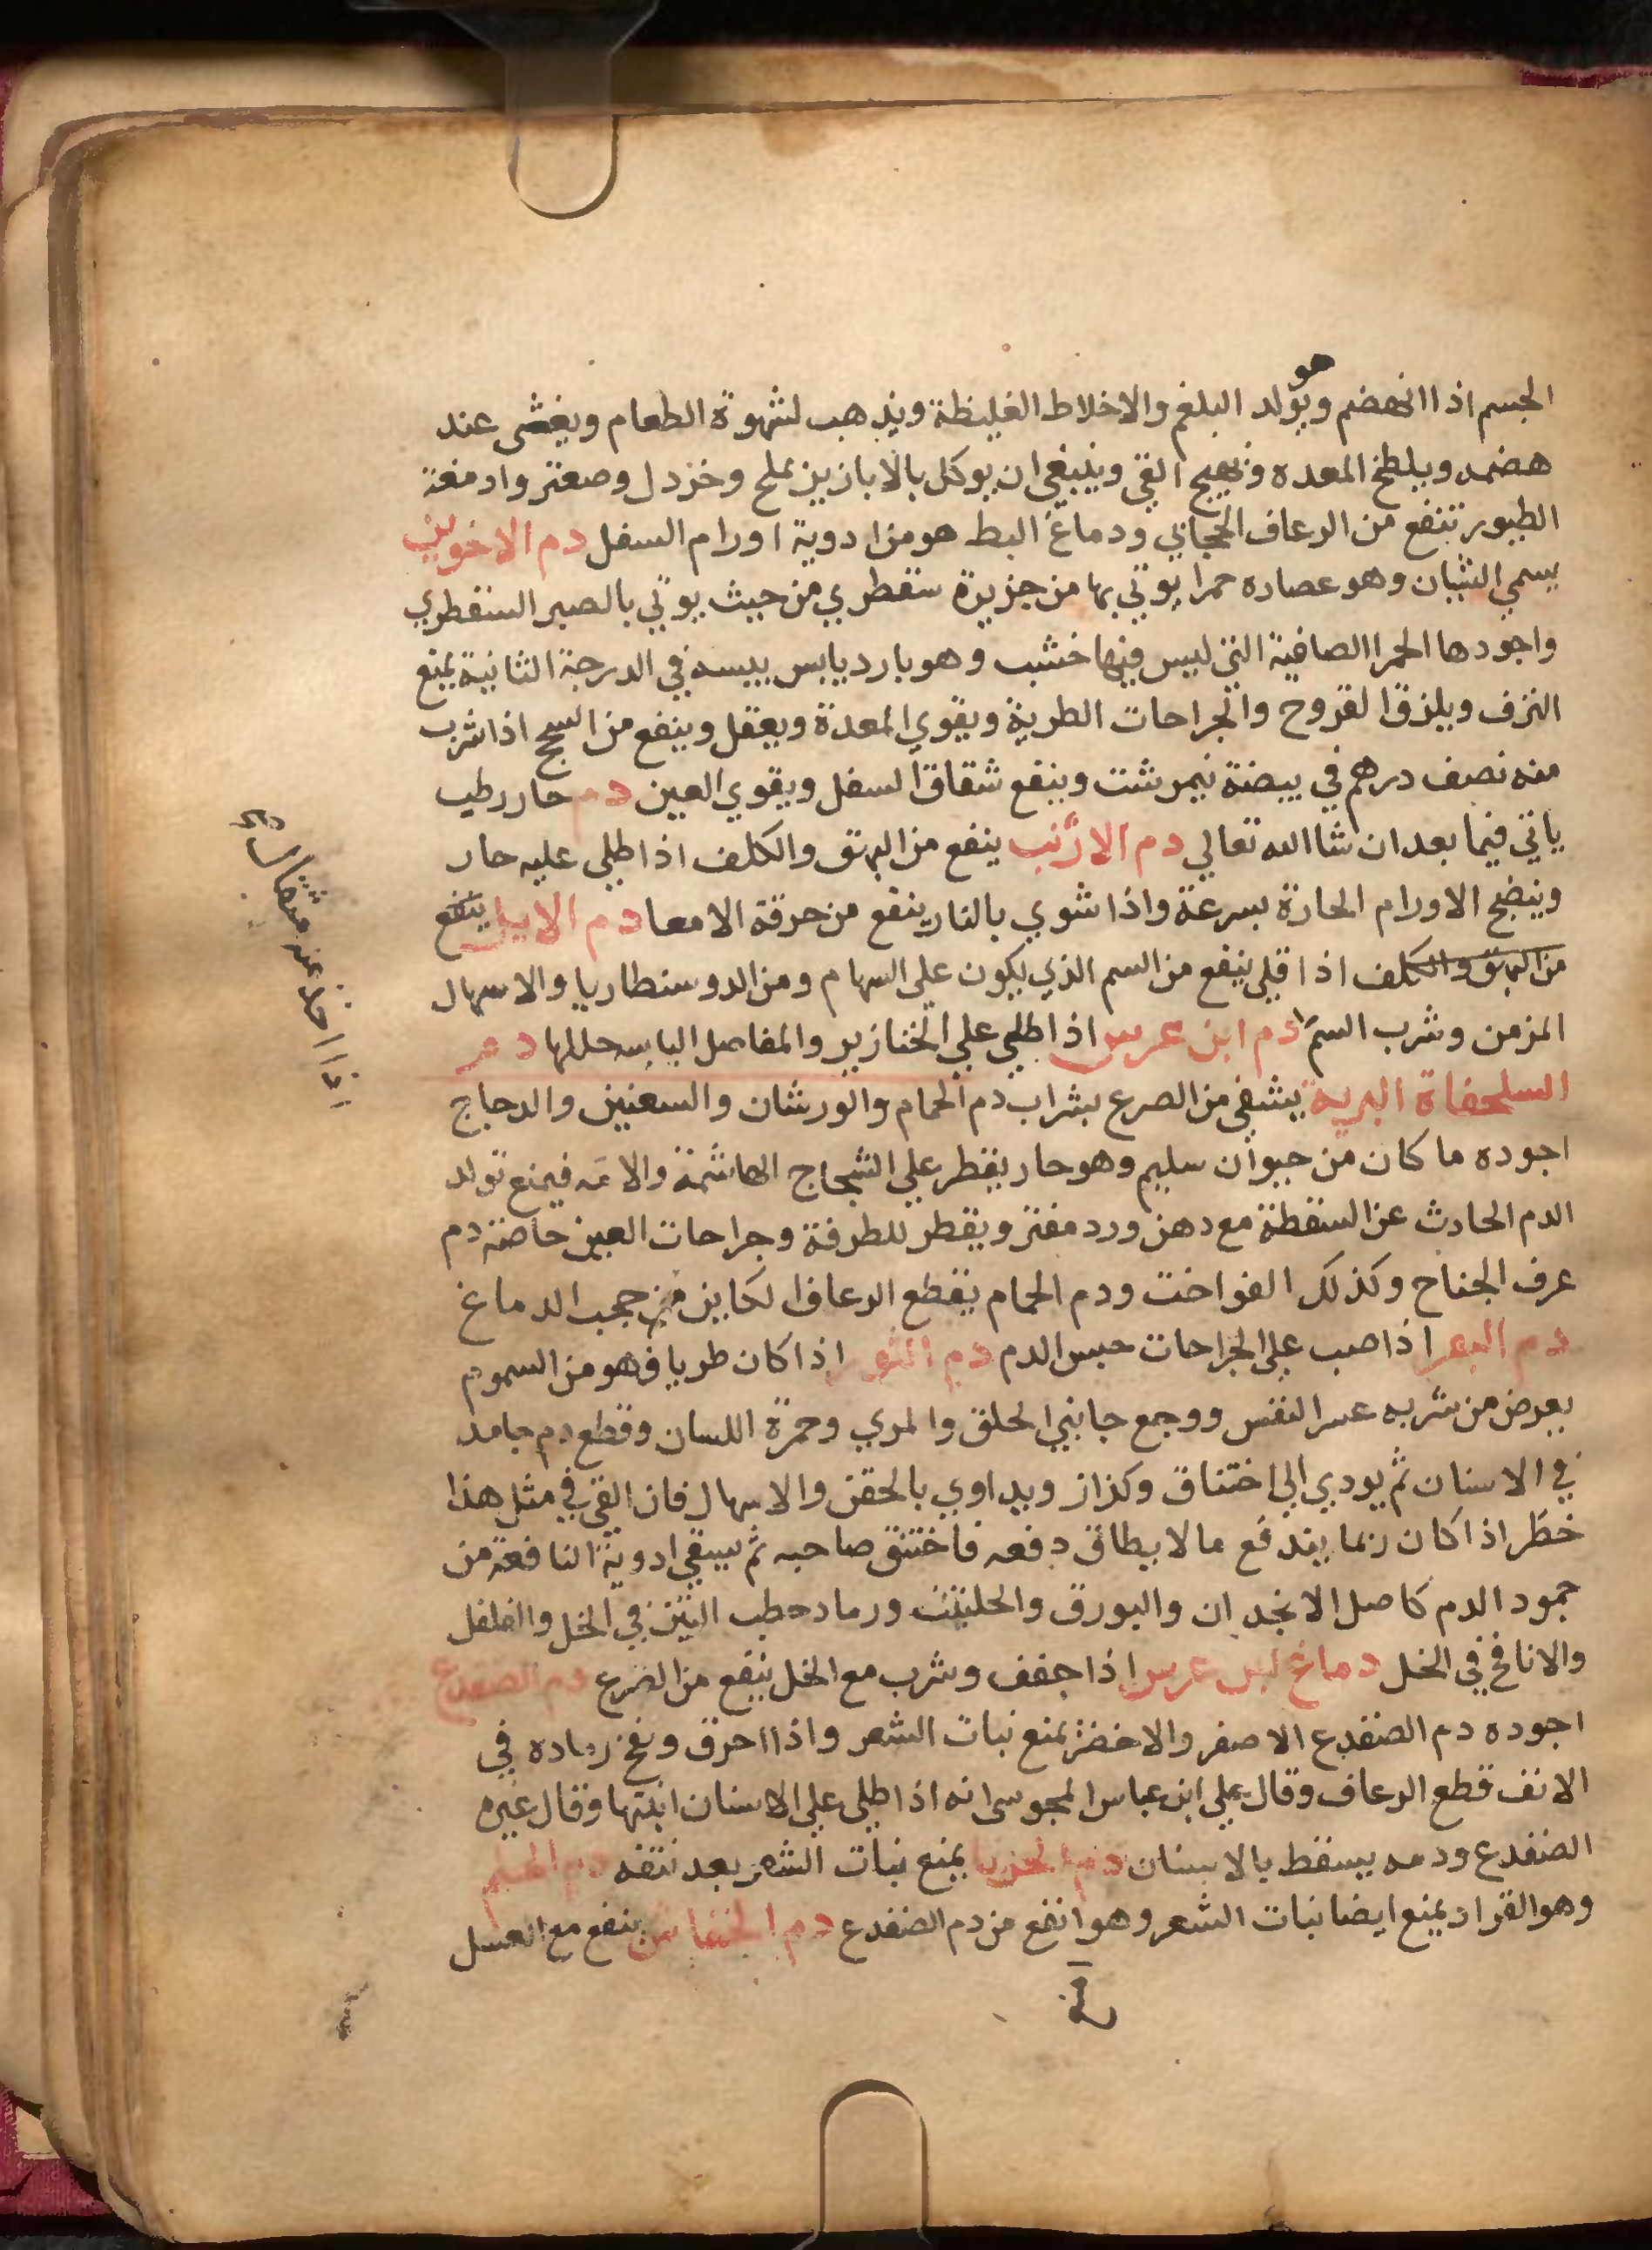 هو
الجسم اذا انهضم ويولد البلغم والاخلاط الغليظة ويذهب لشهوة الطعام ويغشى عند
هضمه ويلطخ المعده ويهيج القي وينبغي ان يوكل بالابازيز بملح وخردل وصعتر وادمغة
الطيور تنفع من الرعاف الحجابي ودماغ البط هو من ادوية اورام السفل دم الاخوين
يسمي الشيان وهو عصاره حمرا يوتي بها من جزيرة سقطري من حيث يوتي بالصبر السقطري
واجودها الحمرا الصافية التي ليس فيها خشب وهو بارد يابس يبسه في الدرجة الثانية يمنع
النزف ويلزق القروح والجراحات الطرية ويقوي المعدة ويعقل وينفع من السحج اذا شرب
منه نصف درهم في بيضة نيمرشت وينفع شقاق السفل ويقوي العين دم حار رطب
ياتي فيما بعد ان شا الله تعالي دم الارنب ينفع من البهق والكلف اذا طلي عليه حار
وينضج الاورام الحارة بسرعة واذا شوي بالنار ينفع من حرقة الامعا دم الايل ينفع
من البهق والكلف اذا قلي ينفع من السم الذي يكون علي السهام ومن الدوسنطاريا والاسهال
المزمن وشرب السم دم ابن عرس اذا طلي علي الخنازير والمفاصل اليابسه حللها دم
السلحفاة البرية يشفي من الصرع بشراب دم الحمام والورشان والسعنين والدجاج
اجوده ما كان من حيوان سليم وهو حار يقطر علي الشجاج الهاشمة والامه فيمنع تولد
الدم الحادث عن السقطة مع دهن ورد مفتر ويقطر للطرفة وجراحات العين خاصة دم
عرف الجناح وكذلك الفواخت ودم الحمام يقطع الرعاف الكاين من حجب الدماغ
دم البعر اذا صب علي الجراحات حبس الدم دم الثور اذا كان طريا فهو من السموم
يعرض من شربه عسر النفس ووجع جانبي الحلق والمري وحمرة اللسان وقطع دم جامد
في الاسنان ثم يودي الي اختناق وكزاز ويداوي بالحقن والاسهال فان القي في مثل هذا
خطر اذا كان ربما يندفع ما لا يطاق دفعه فاختنق صاحبه ثم يسقي ادوية النافعة من
جمود الدم كاصل الانجدان والبورق والحلتيت ورماد حطب التين في الخل والفلفل
والانافخ في الخل دماغ ابن عرس اذا جفف وشرب مع الخل ينفع من الصرع دم الضفدع
اجوده دم الضفدع الاصفر والاخضر يمنع نبات الشعر واذا احرق ونفخ رماده في
الانف قطع الرعاف وقال علي ابن عباس المجوسي انه اذا طلي علي الاسنان انبتها وقال غيره
الضفدع ودمه يسقط بالاسنان دم الحربا يمنع نبات الشعر بعد نتفه دم الحلم
وهو القراد يمنع ايضا نبات الشعر وهو انفع من دم الضفدع دم الخفاش ينفع مع العسل